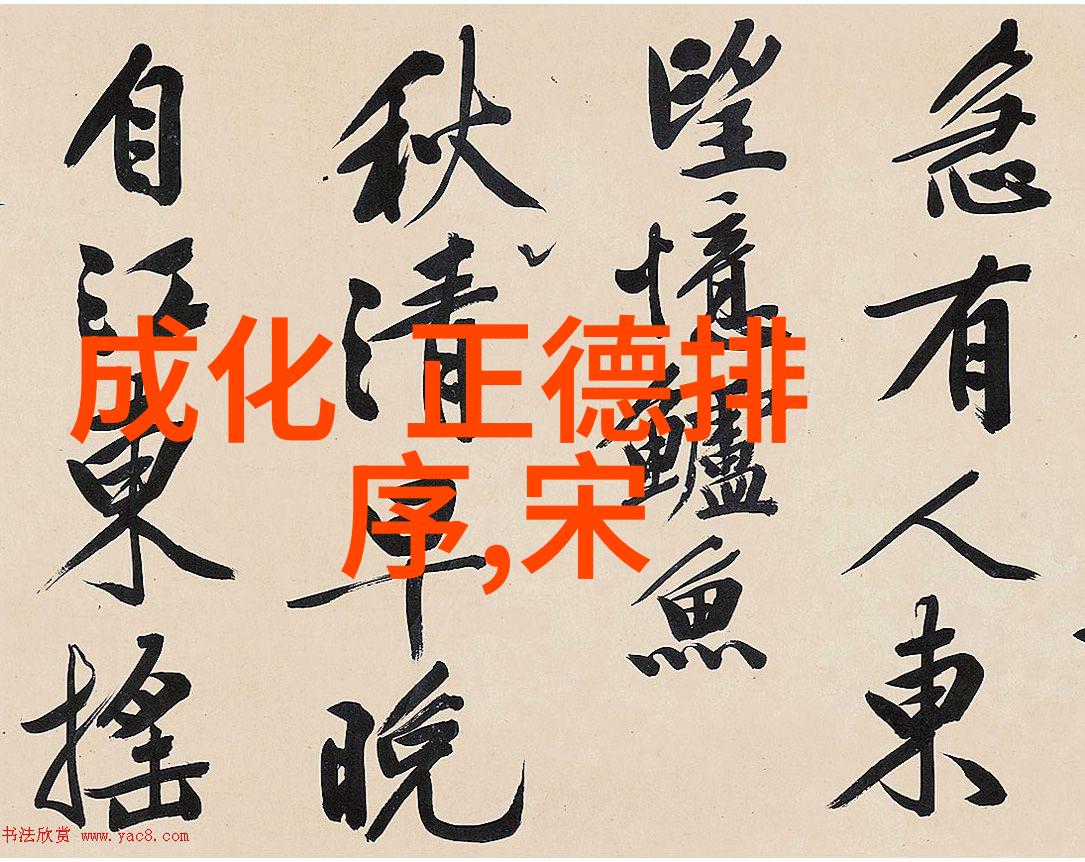 急有人東
望憶鱸魚
秋清早晚
自江東搖
成化 正德排
序,宋
书法欣赏 www.yac8.com